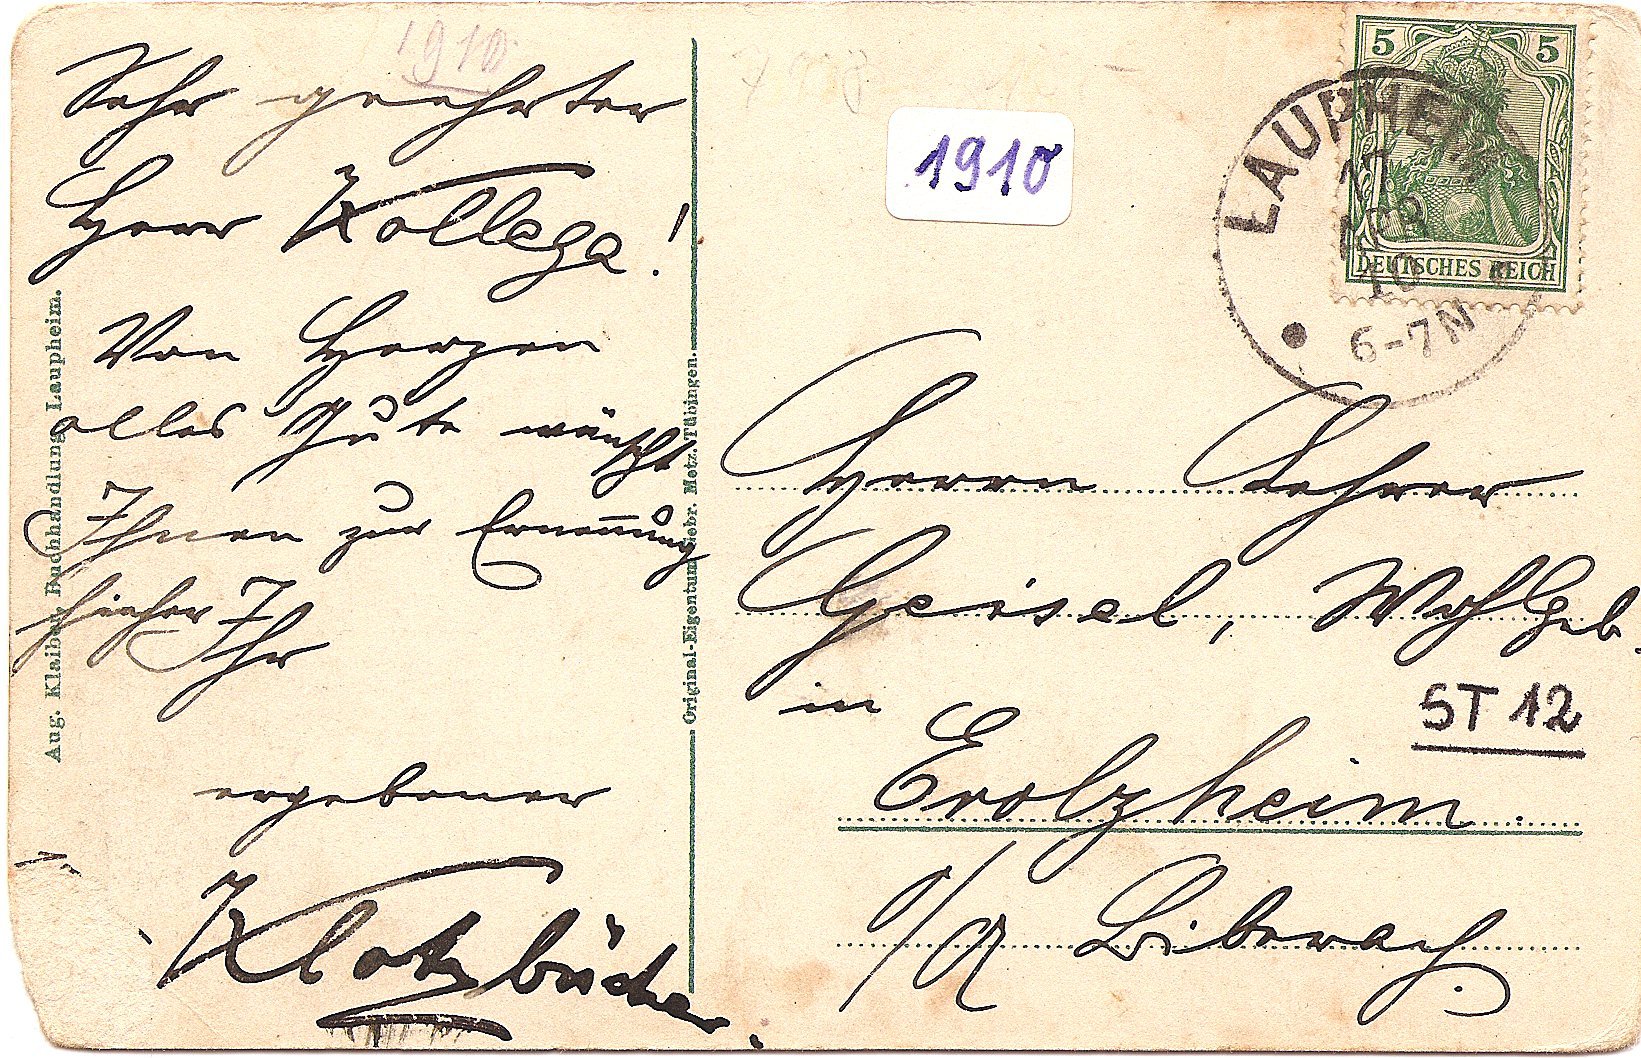 1910
Sehr geehrter
Herr Kollega!
Von Herzen
alles Gute wünscht
Ihnen zur Ernennung
hieher Ihr
ergebener
Klotzbücher.
Aug. Klaiber, Buchhandlung, Laupheim.
Original-Eigentum Gebr. Metz, Tübingen.
1910
5 5
DEUTSCHES REICH
LAUPHEIM
17
APR
10
6-7N
Herrn Lehrer
Geisel, Wohlgeb.
in
ST 12
Erolzheim.
O/A Biberach.